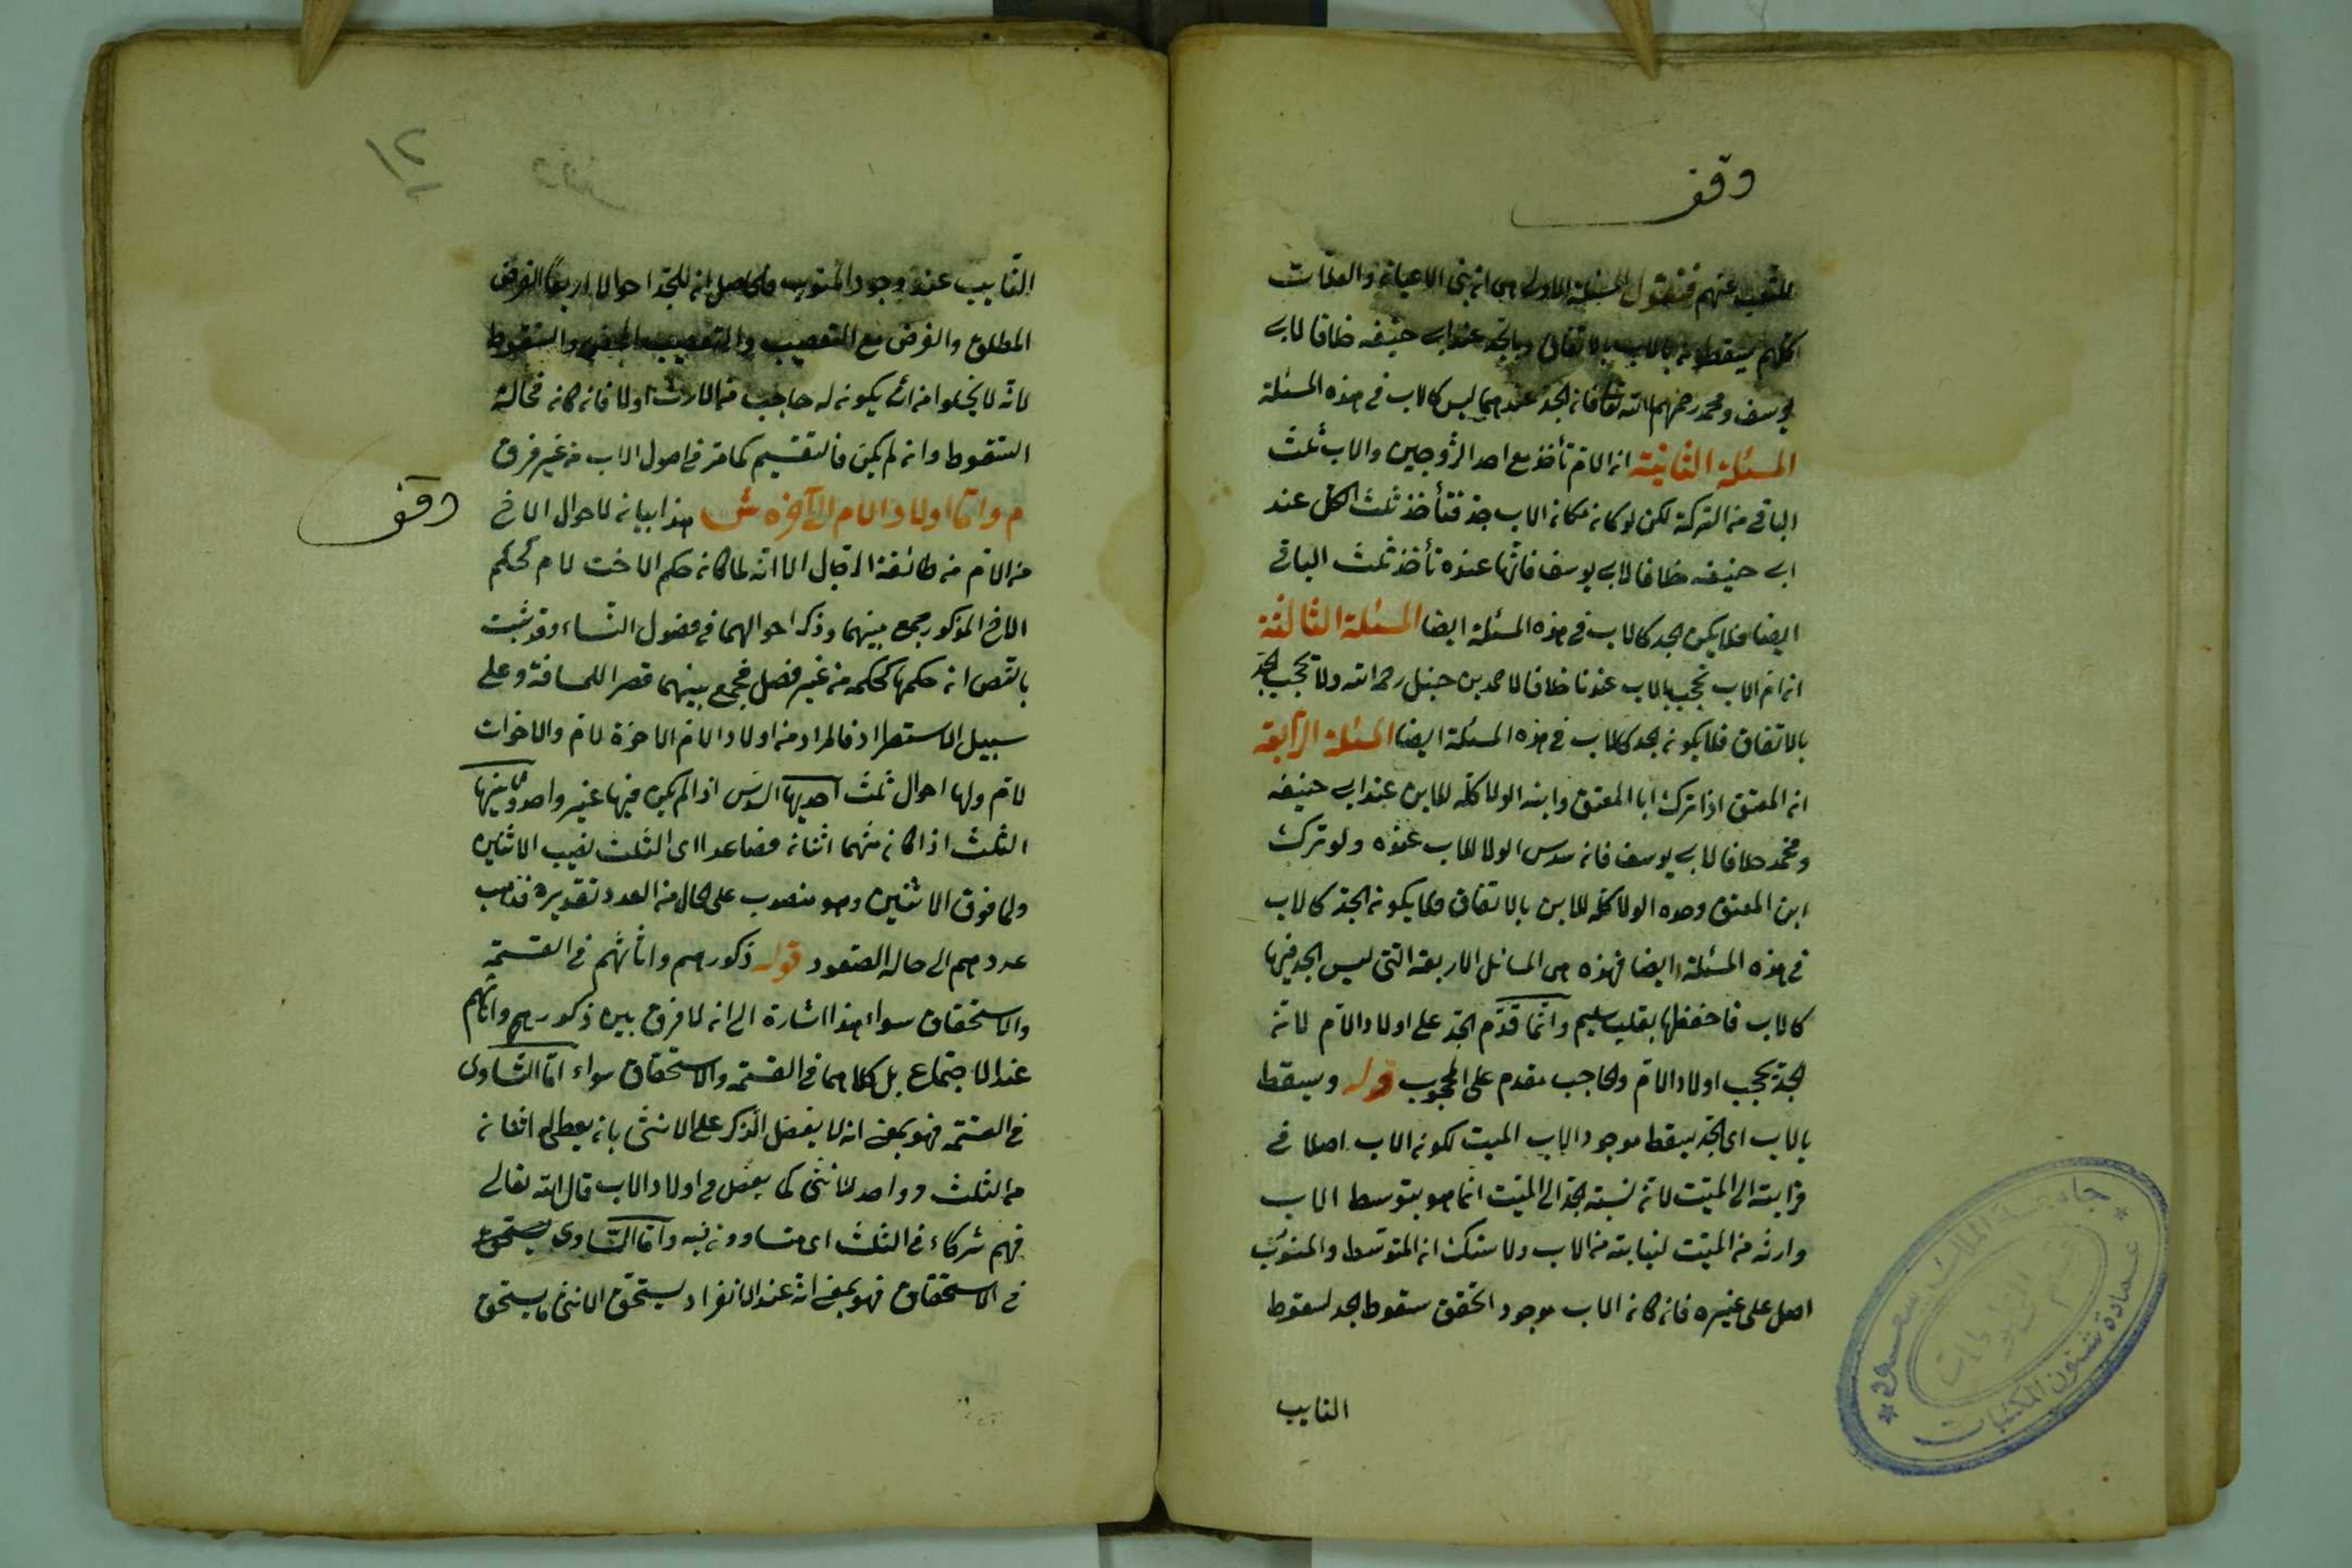 وقف
للتعب عنهم فنقول المسئلة الاولى هى ان بنى الاعيان والعلات
كلهم يسقطون بالاب بالاتفاق وبالجد عند ابى حنيفه خلافا لابى
يوسف ومحمد رحمهم الله تعا فان الجد عندهما ليس كالاب فى هذه المسئلة
المسئلة الثانية ان الام تأخذ مع احد الزوجين والاب ثلث
الباقى من التركة لكن لو كان مكان الاب جد فتأخذ ثلث الكل عند
ابى حنيفه خلافا لابى يوسف فانها عنده تأخذ ثلث الباقى
ايضا فلا يكون الجد كالاب فى هذه المسئلة ايضا المسئلة الثالثة
ان ام الاب تحجب بالاب عندنا خلافا لاحمد بن حنبل رحمه الله ولا تحجب بالجد
بالاتفاق فلا يكون الجد كالاب فى هذه المسئلة ايضا المسئلة الرابعة
ان المعتق اذا ترك ابا المعتق وابنه الولا كله للابن عند ابى حنيفه
ومحمد خلافا لابى يوسف فان سدس الولا للاب عنده ولو ترك
ابن المعتق وجده الولا كله للابن بالاتفاق فلا يكون الجد كالاب
فى هذه المسئلة ايضا فهذه هى المسائل الاربعة التى ليس الجد فيها
كالاب فاحفظها بقلب سليم وانما قدم الجد على اولاد الام لانه
الجد يحجب اولاد الام والحاجب مقدم على المحجوب قوله ويسقط
بالاب اى الجد يسقط بوجود الاب الميت لكون الاب اصلا فى
قرابته الى الميت لانه نسبة الجد الى الميت انما هو بتوسط الاب
وارثه من الميت لنيابته من الاب ولا شك ان المتوسط والمنوب
اصل على غيره فان كان الاب موجود اتحقق سقوط الجد لسقوط
النايب
١٢
النايب عند وجود المنوب فالحاصل ان للجد احوالا اربعا الفرض
المطلق والفرض مع التعصيب والتعصيب المحض والسقوط
لانه لا يخلوا من ان يكون له حاجب من الارث اولا فان كان فحاله
السقوط وان لم يكن فالتقسيم كما مر فى اصول الاب من غير فرق
م واما اولاد الام الى آخره ش هذا بيان لاحوال الاخ
وقف
من الام من طائفة الرجال الا انه لما كان حكم الاخت لام كحكم
الاخ المذكور جمع بينهما وذكر احوالهما فى فصول النساء وقد ثبت
بالنص ان حكمها كحكمه من غير فصل فجمع بينهما قصرا للمسافة وعلى
سبيل الاستطراد فالمراد من اولاد الام الاخوة لام والاخوات
لام ولها احوال ثلث احديها السدس اذا لم يكن فيها غير واحد وثانيها
الثلث اذا كان منهما اثنان فصاعدا اى الثلث نصيب الاثنين
ولما فوق الاثنين وهو منصوب على الحال من العدد تقديره فذهب
عددهم الى حالة الصعود قوله ذكورهم واناثهم فى القسمة
والاستحقاق سواء هذا اشارة الى انه لا فرق بين ذكورهم واناثهم
عند الاجتماع بل كلاهما فى القسمة والاستحقاق سواء اما التساوى
فى القسمة فهو بمعنى انه لا يفضل الذكر على الانثى بان يعطى له اثنان
من الثلث وواحد للانثى كما يفضل فى اولاد الاب قال الله تعالى
فهم شركاء فى الثلث اى متساوون فيه واما التساوى
فى الاستحقاق فهو بمعنى انه عند الانفراد يستحق الانثى ما يستحق
جامعة الملك سعود
عمادة شئون المكتبات